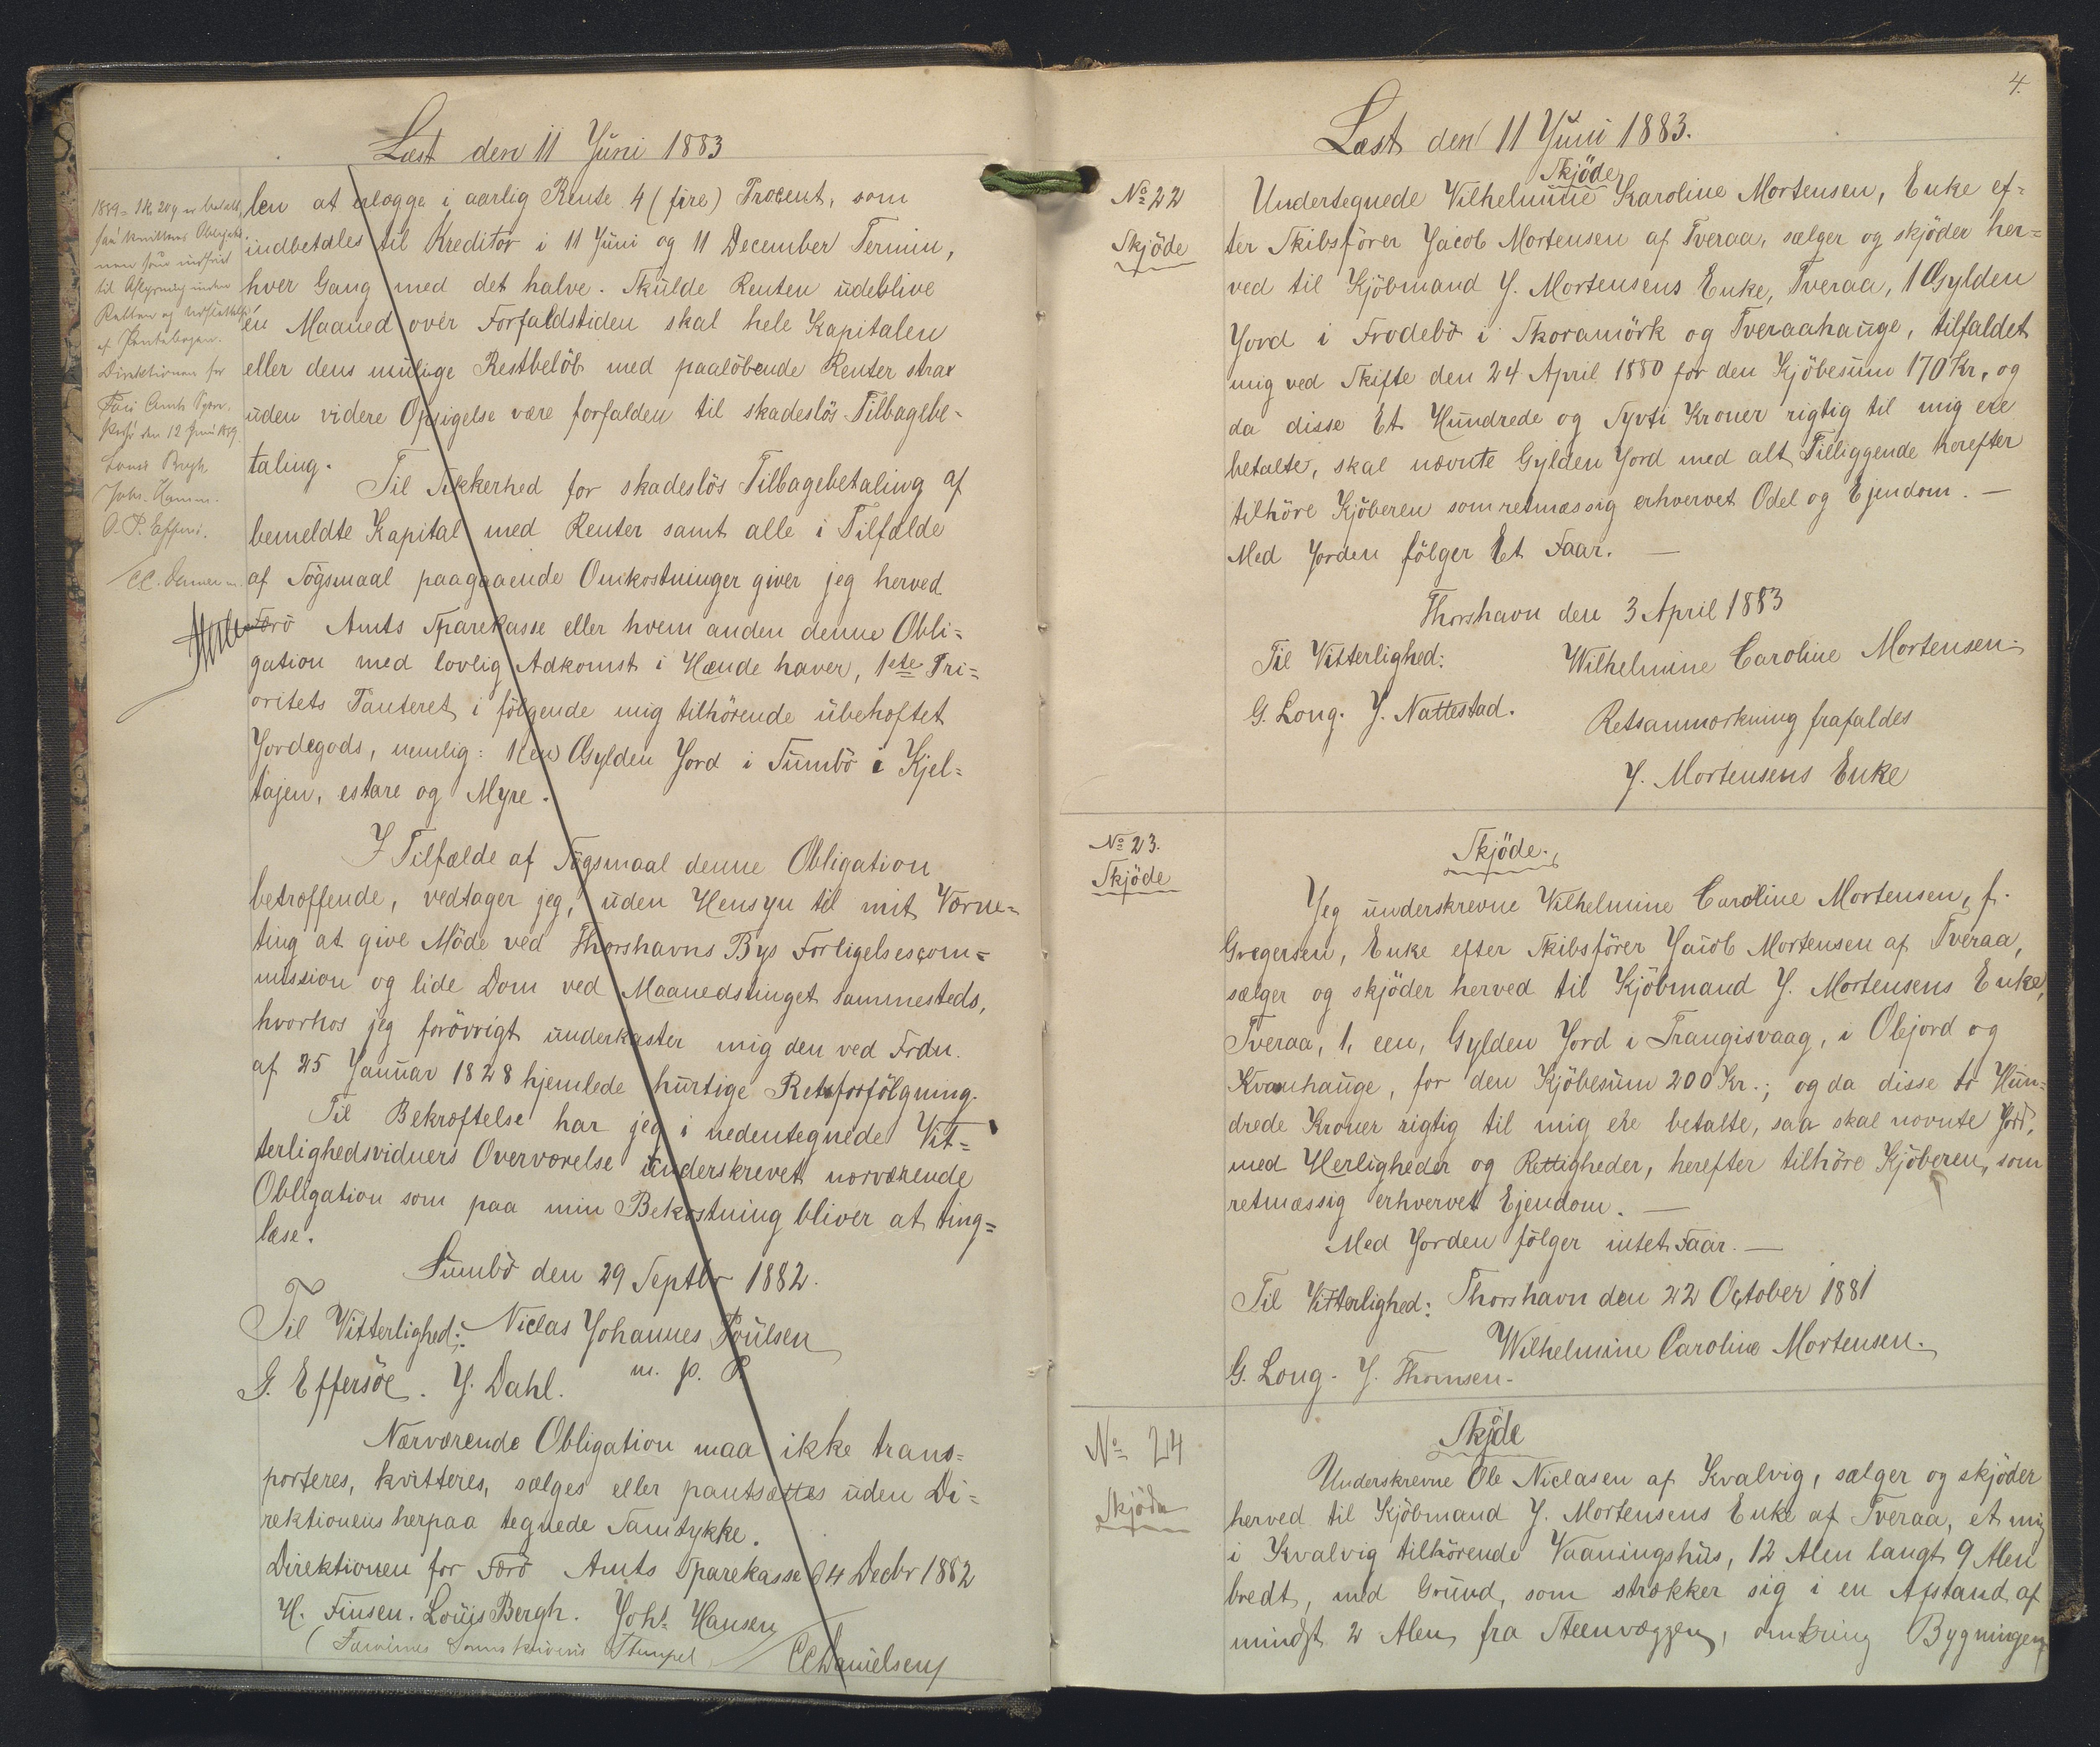 Læst den 11 Juni 1883
len at erlægge i aarlig Rente 4 (fire) Procent, som
indbetales til Kreditor i 11 Juni og 11 December Termin,
hver Gang med det halve. Skulde Renten udeblive
en Maaned over Forfaldstiden skal hele Kapitalen
eller dens mulige Restbelöb med paalöbende Renter strax
uden videre Opsigelse være forfalden til skadeslös Tilbagebe-
taling.
Til Sikkerhed for skadeslös Tilbagebetaling af
bemeldte Kapital med Renter samt alle i Tilfælde
af Sögsmaal paagaaende Omkostninger giver jeg herved
Færö Amts Sparekasse eller hvem anden denne Obli=
gation med lovlig Adkomst i Hænde haver, 1ste Pri=
oritets Panteret i fölgende mig tilhörende ubehæftet
Jordegods, nemlig: 1 een Gylden Jord i Sumbö i Kjel=
tajen, estare og Myre.
I Tilfælde af Sögsmaal denne Obligation
betræffende, vedtager jeg, uden Hensyn til mit Værne=
ting at give Möde ved Thorshavns Bys Forligelsescom=
mission og lide Dom ved Maanedstinget sammesteds,
hvorhos jeg forövrigt underkaster mig den ved Frdn.
af 25 Januar 1828 hjemlede hurtige Retsforfölgning.
Til Bekræftelse har jeg i nedentegnede Vit=
terlighedsvidners Overværelse underskrevet nærværende
Obligation som paa min Bekostning bliver at ting=
læse.
Sumbö den 29 Septbr 1882.
Til Vitterlighed: Niclas Johannes Poulsen
m. p. P.
G. Effersöe. J. Dahl.
Nærværende Obligation maa ikke trans=
porteres, kvitteres, sælges eller pantsættes uden Di=
rektionens herpaa tegnede Samtykke.
Direktionen for Færö Amts Sparekasse d 4 Decbr 1882
H. Finsen. Louis Bergh. Johs. Hansen
(Færöernes Sorenskriveris Stempel
CC Danielsen
til Aflysning
Retten og
af Pantebogen.
Direktionen for
den 12 Juni 1889.
Louis Bergh
Johs. Hansen.
4.
Læst den 11 Juni 1883.
No 22
Skjöde
Skjöde
Undertegnede Vilhelmine Karoline Mortensen, Enke ef=
ter Skibsförer Jacob Mortensen af Tveraa, sælger og skjöder her=
ved til Kjöbmand J. Mortensens Enke, Tveraa, 1 Gylden
Jord i Frodebö i Skoramörk og Tveraahauge, tilfaldet
mig ved Skifte den 24 April 1880 for den Kjöbesum 170 Kr, og
da disse Et Hundrede og Syvti Kroner rigtig til mig ere
betalte, skal nævnte Gylden Jord med alt Tilliggende herefter
tilhöre Kjöberen som retmæssig erhvervet Odel og Ejendom. —
Med Jorden fölger Et Faar. —
Thorshavn den 3 April 1883
Til Vitterlighed:
Wilhelmine Caroline Mortensen
G. Long. J. Nattestad.
Retsanmærkning frafaldes
J. Mortensens Enke
No 23.
Skjöde
Skjöde.
Jeg underskrevne Vilhelmine Caroline Mortensen, f.
Gregersen, Enke efter Skibsförer Jacob Mortensen af Tveraa,
sælger og skjöder herved til Kjöbmand J. Mortensens Enke,
Tveraa, 1, een, Gylden Jord i Trangisvaag, i Olejord og
Kvanhauge, for den Kjöbesum 200 Kr.; og da disse to Hun=
drede Kroner rigtig til mig ere betalte, saa skal nævnte Jord,
med Herligheder og Rettigheder, herefter tilhöre Kjöberen, som
retmæssig erhvervet Ejendom. —
Med Jorden fölger intet Faar. —
Til Vitterlighed: Thorshavn den 22 October 1881
Wilhelmine Caroline Mortensen.
G. Long. J. Thomsen.
No 24
Skjöde
Skjöde
Underskrevne Ole Niclasen af Kvalvig, sælger og skjöder
herved til Kjöbmand J. Mortensens Enke af Tveraa, et mig
i Kvalvig tilhörende Vaaningshus, 12 Alen langt 9 Alen
bredt, med Grund, som strækker sig i en Afstand af
mindst 2 Alen fra Steenvæggen, omkring Bygningen